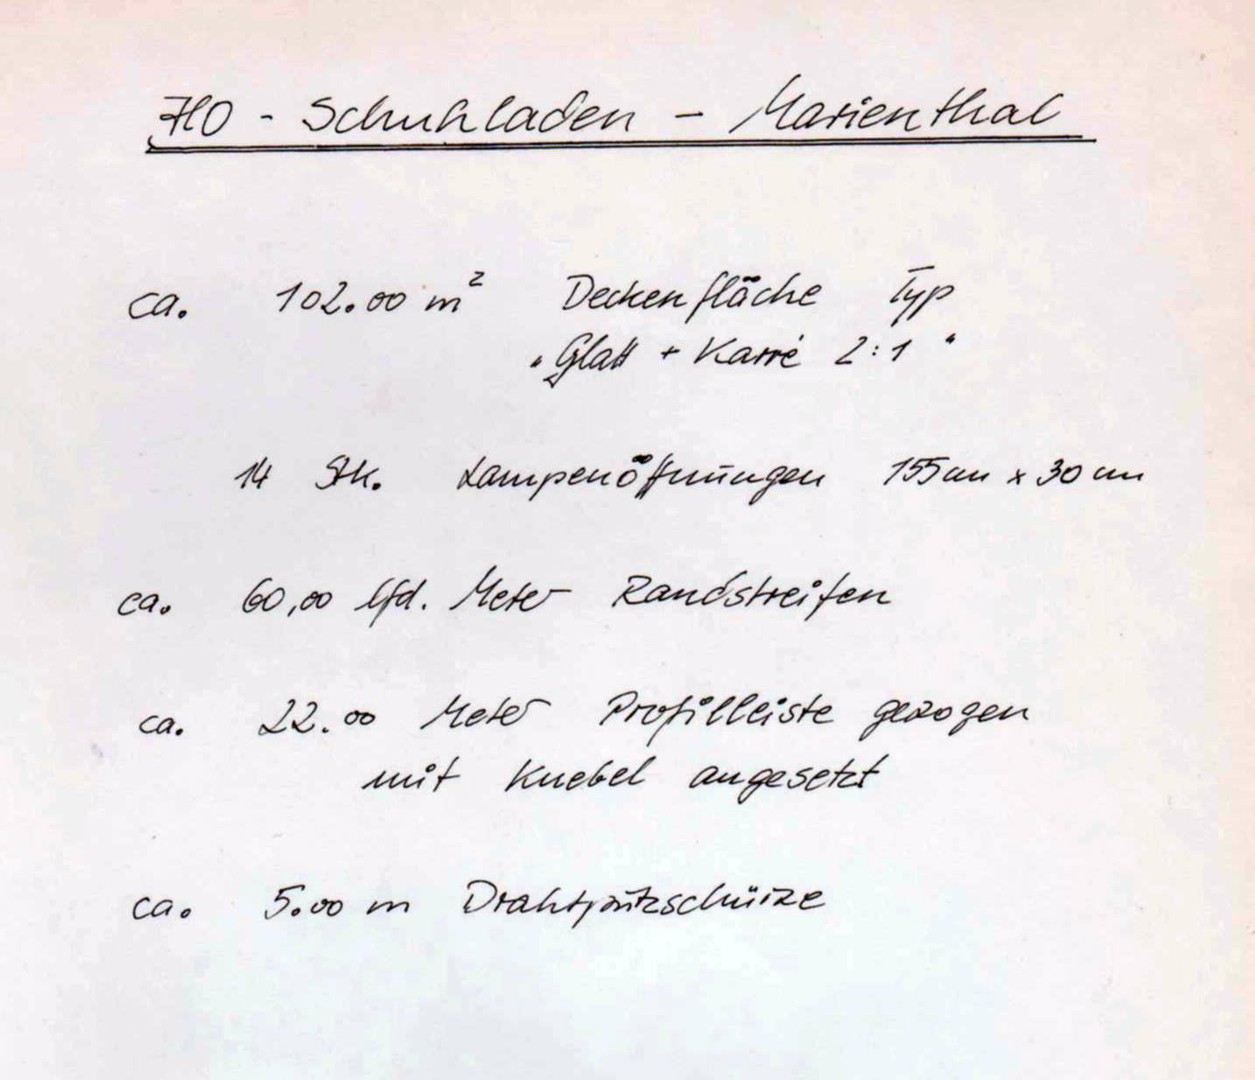 HO - Schuhladen - Marienthal
ca. 102.00 m² Deckenfläche Typ
"Glatt + Karré 2:1"
14 Stk. Lampenöffnungen 155cm x 30 cm
ca. 60,00 lfd. Meter Randstreifen
ca. 22.00 Meter Profilleiste gezogen
mit Knebel angesetzt
ca. 5.00 m Drahtputzschürze